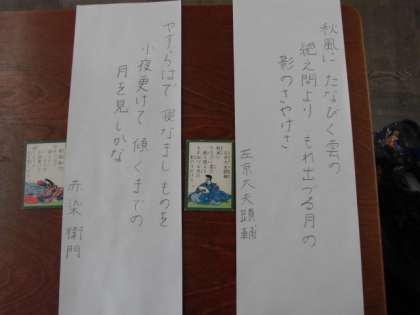 秋風に たなびく雲の
絶え間より もれ出づる月の
影のさやけさ
左京大夫顕輔
やすらはで 寝なましものを
小夜更けて 傾くまでの
月を見しかな
赤染衛門